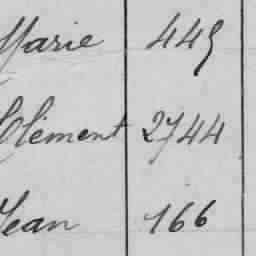 Marie 445
Clément 2744
Jean 166